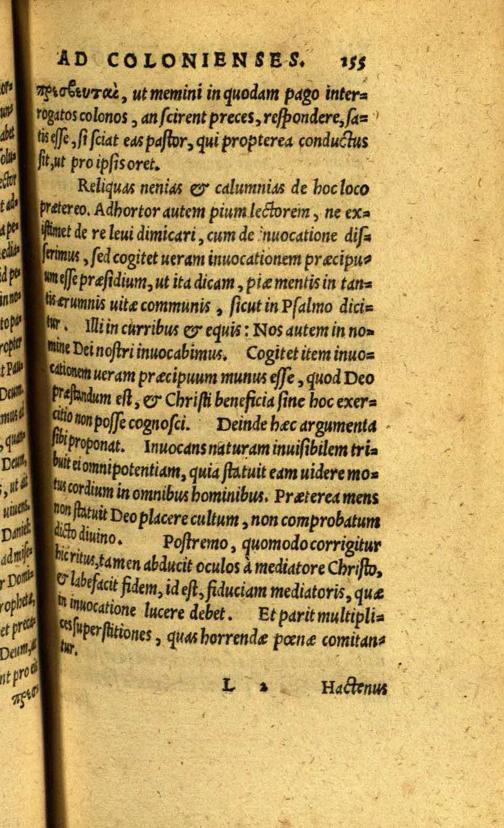 AD COLONIENSES. 155
πρεσβευτὰς, ut memini in quodam pago inter=
rogatos colonos, an scirent preces, respondere, sa=
tis esse, si sciat eas pastor, qui propterea conductus
sit, ut pro ipsis oret.
Reliquas nenias & calumnias de hoc loco
prætereo. Adhortor autem pium lectorem, ne ex=
istimet de re leui dimicari, cum de inuocatione dis=
serimus, sed cogitet ueram inuocationem præcipu=
um esse præsidium, ut ita dicam, piæ mentis in tan=
tis ærumnis uitæ communis, sicut in Psalmo dici=
tur. Illi in curribus & equis: Nos autem in no=
mine Dei nostri inuocabimus. Cogitet item inuo=
cationem ueram præcipuum munus esse, quod Deo
præstandum est, & Christi beneficia sine hoc exer=
citio non posse cognosci. Deinde hæc argumenta
sibi proponat. Inuocans naturam inuisibilem tri=
buit ei omnipotentiam, quia statuit eam uidere mo=
tus cordium in omnibus hominibus. Præterea mens
non statuit Deo placere cultum, non comprobatum
dicto diuino. Postremo, quomodo corrigitur
hic ritus, tamen abducit oculos à mediatore Christo,
& labefacit fidem, id est, fiduciam mediatoris, quæ
in inuocatione lucere debet. Et parit multipli=
ces superstitiones, quas horrendæ pœnæ comitan=
tur.
L 2 Hactenus